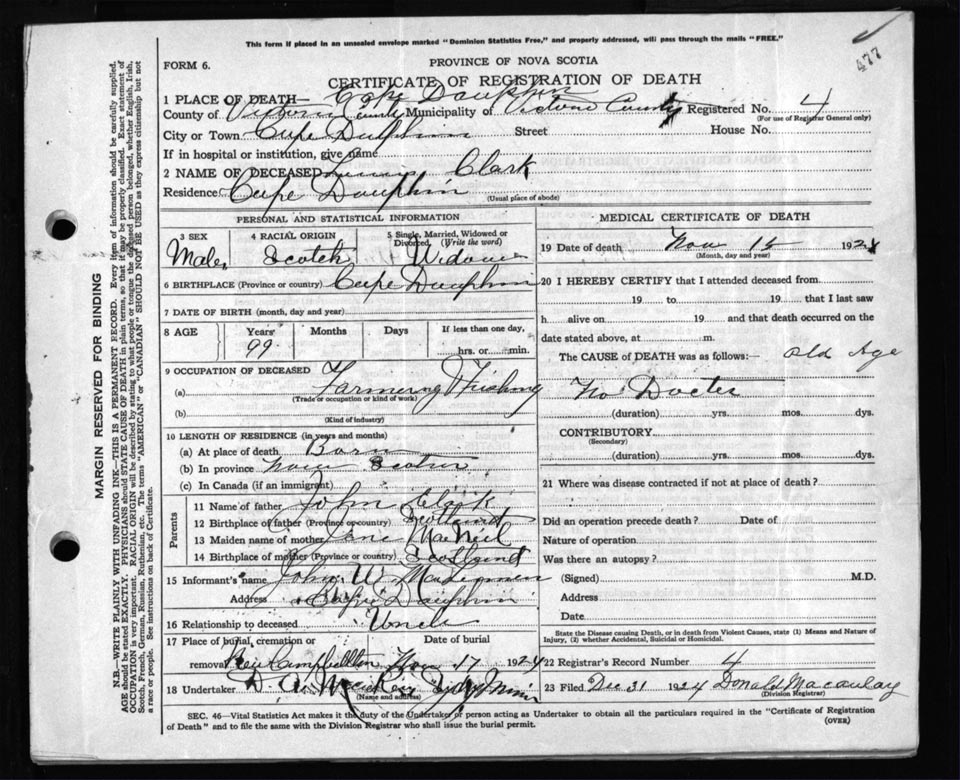 This form if placed in an unsealed envelope marked "Dominion Statistics Free," and properly addressed, will pass through the mails "FREE."
477
FORM 6.
PROVINCE OF NOVA SCOTIA
CERTIFICATE OF REGISTRATION OF DEATH
1 PLACE OF DEATH— Cape Dauphin
County of Victoria County Municipality of Victoria County Registered No. 4
(For use of Registrar General only)
City or Town Cape Dauphin Street House No.
If in hospital or institution, give name
2 NAME OF DECEASED Clark
Residence Cape Dauphin
(Usual place of abode)
PERSONAL AND STATISTICAL INFORMATION
3 SEX 4 RACIAL ORIGIN 5 Single, Married, Widowed or Divorced, (Write the word)
Male Scotch Widower
6 BIRTHPLACE (Province or country) Cape Dauphin
7 DATE OF BIRTH (month, day and year)
8 AGE Years Months Days If less than one day,
99 hrs. or min.
9 OCCUPATION OF DECEASED
(a) Farmering Fishing
(Trade or occupation or kind of work)
(b)
(Kind of industry)
10 LENGTH OF RESIDENCE (in years and months)
(a) At place of death Born
(b) In province Nova Scotia
(c) In Canada (if an immigrant)
Parents
11 Name of father John Clark
12 Birthplace of father (Province or country) Scotland
13 Maiden name of mother Jane MacNeil
14 Birthplace of mother (Province or country) Scotland
15 Informant's name John W.
Address Cape Dauphin
16 Relationship to deceased Uncle
17 Place of burial, cremation or removal Date of burial
New Campbellton Nov 17 1924
18 Undertaker D. A.
(Name and address)
MEDICAL CERTIFICATE OF DEATH
19 Date of death Nov 15 1924
(Month, day and year)
20 I HEREBY CERTIFY that I attended deceased from
19 to 19 that I last saw
h alive on 19 and that death occurred on the
date stated above, at m.
The CAUSE of DEATH was as follows:— Old Age
No Docter
(duration) yrs. mos. dys.
CONTRIBUTORY
(Secondary)
(duration) yrs. mos. dys.
21 Where was disease contracted if not at place of death?
Did an operation precede death? Date of
Nature of operation
Was there an autopsy?
(Signed) M.D.
Address
Date
State the Disease causing Death, or in death from Violent Causes, state (1) Means and Nature of
Injury, (2) whether Accidental, Suicidal or Homicidal.
22 Registrar's Record Number 4
23 Filed Dec 31 1924 Donald Macaulay
(Division Registrar)
SEC. 46—Vital Statistics Act makes it the duty of the Undertaker or person acting as Undertaker to obtain all the particulars required in the "Certificate of Registration
of Death" and to file the same with the Division Registrar who shall issue the burial permit.
(OVER)
MARGIN RESERVED FOR BINDING
N.B.—WRITE PLAINLY WITH UNFADING INK—THIS IS A PERMANENT RECORD. Every item of information should be carefully supplied.
AGE should be stated EXACTLY. PHYSICIANS should STATE CAUSE OF DEATH in plain terms, so that it may be properly classified. Exact statement of
OCCUPATION is very important. RACIAL ORIGIN will be described by stating to what people or tongue the deceased person belonged, whether English, Irish,
Scotch, French, German, Russian, Ruthenian, etc. The terms "AMERICAN" or "CANADIAN" SHOULD NOT BE USED as they express citizenship but not
a race or people. See instructions on back of Certificate.